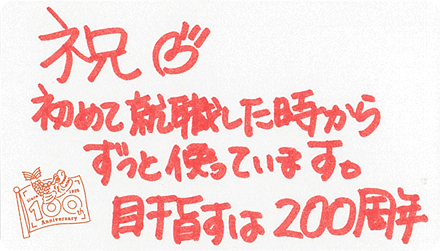 祝
初めて就職した時から
ずっと使っています。
目指すは200周年
100th
Anniversary